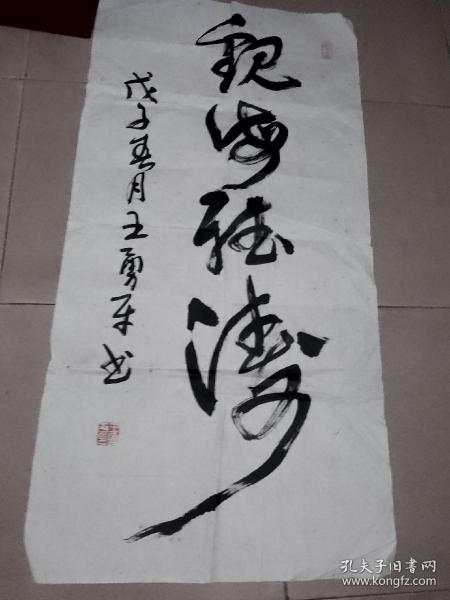 觀海聽濤
戊子春月王勇平书
孔夫子旧书网
www.kongfz.com